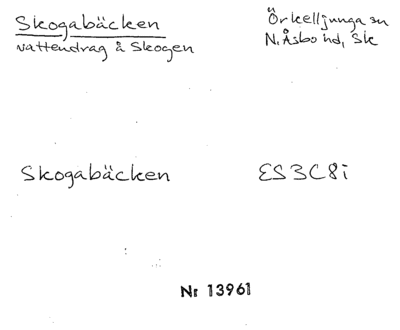 Skogabäcken
vattendrag å Skogen
Örkelljunga sn
N. Åsbo hd, Sk
Skogabäcken
ES3C8i
Nr 13961